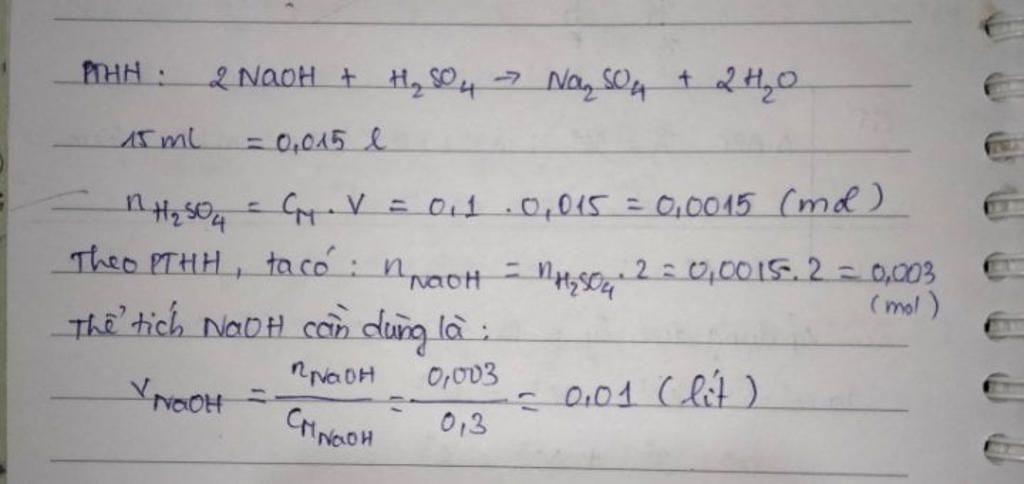 PTHH : 2 NaOH + H₂SO₄ → Na₂SO₄ + 2H₂O
15 ml = 0,015 l
n H₂SO₄ = C_M . V = 0,1 . 0,015 = 0,0015 (mol)
Theo PTHH, ta có : n NaOH = n H₂SO₄ . 2 = 0,0015 . 2 = 0,003 (mol)
Thể tích NaOH cần dùng là :
V NaOH = n NaOH / C_M NaOH = 0,003 / 0,3 = 0,01 (lít)